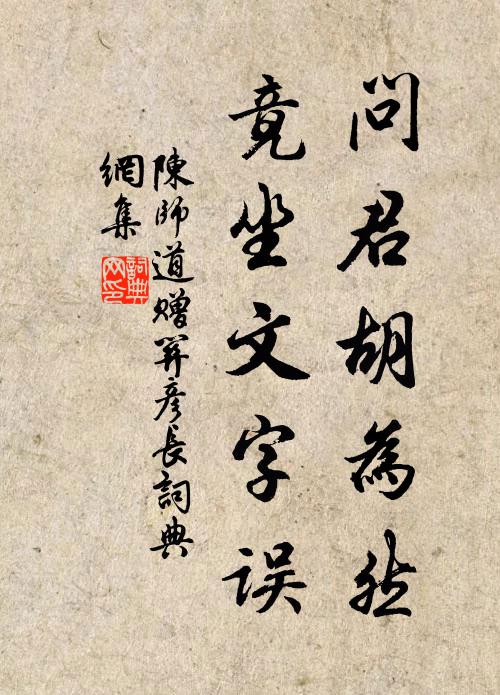 問君胡為然
竟坐文字誤
陳師道贈關彥長詞典
網集
詞典
网印